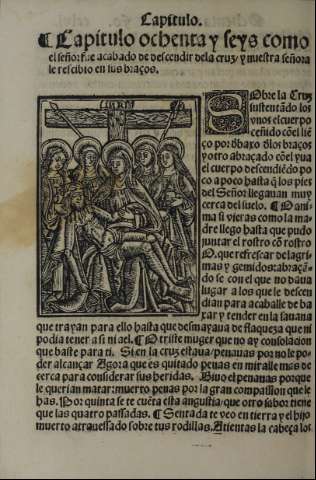 Capitulo.
¶ Capitulo ochenta y seys como
el señor fue acabado de descendir dela cruz / y nuestra señora
le rescibio en sus braços.
SObre la Cruz
sustentãdo los
vnos el cuerpo
ceñido cõel liẽ
ço por debaxo dlos braços
y otro abraçado cõel yua
el cuerpo descendiẽdo po
co apoco hasta q̃ los pies
del Señor llegauan muy
cerca del suelo. ¶ O ani
ma si vieras como la ma
dre llego hasta que pudo
juntar el rostro cõ rostro
O. que refrescar de lagri
mas y gemidos: abraçãn
do se con el que no daua
lugar a los que le descen
dian para acaballe de ba
xar y tender en la sauana
que trayan para ello hasta que desmayaua de flaqueza que ni
podia tener a si ni a el. ¶ O triste muger que no ay consolacion
que baste para ti. Si en la cruz estaua / penauas por no le po
der alcançar Agora que es quitado penas en miralle mas de
cerca para considerar sus heridas. Biuo el penauas porque
le querian matar: muerto penas por la gran compassion que le
has. Por quinta se te cuẽta esta angustia / que otro sabor tiene
que las quatro passadas. ¶ Sentada te veo en tierra y el hijo
muerto atrauessado sobre tus rodillas. Atientas la cabeça los